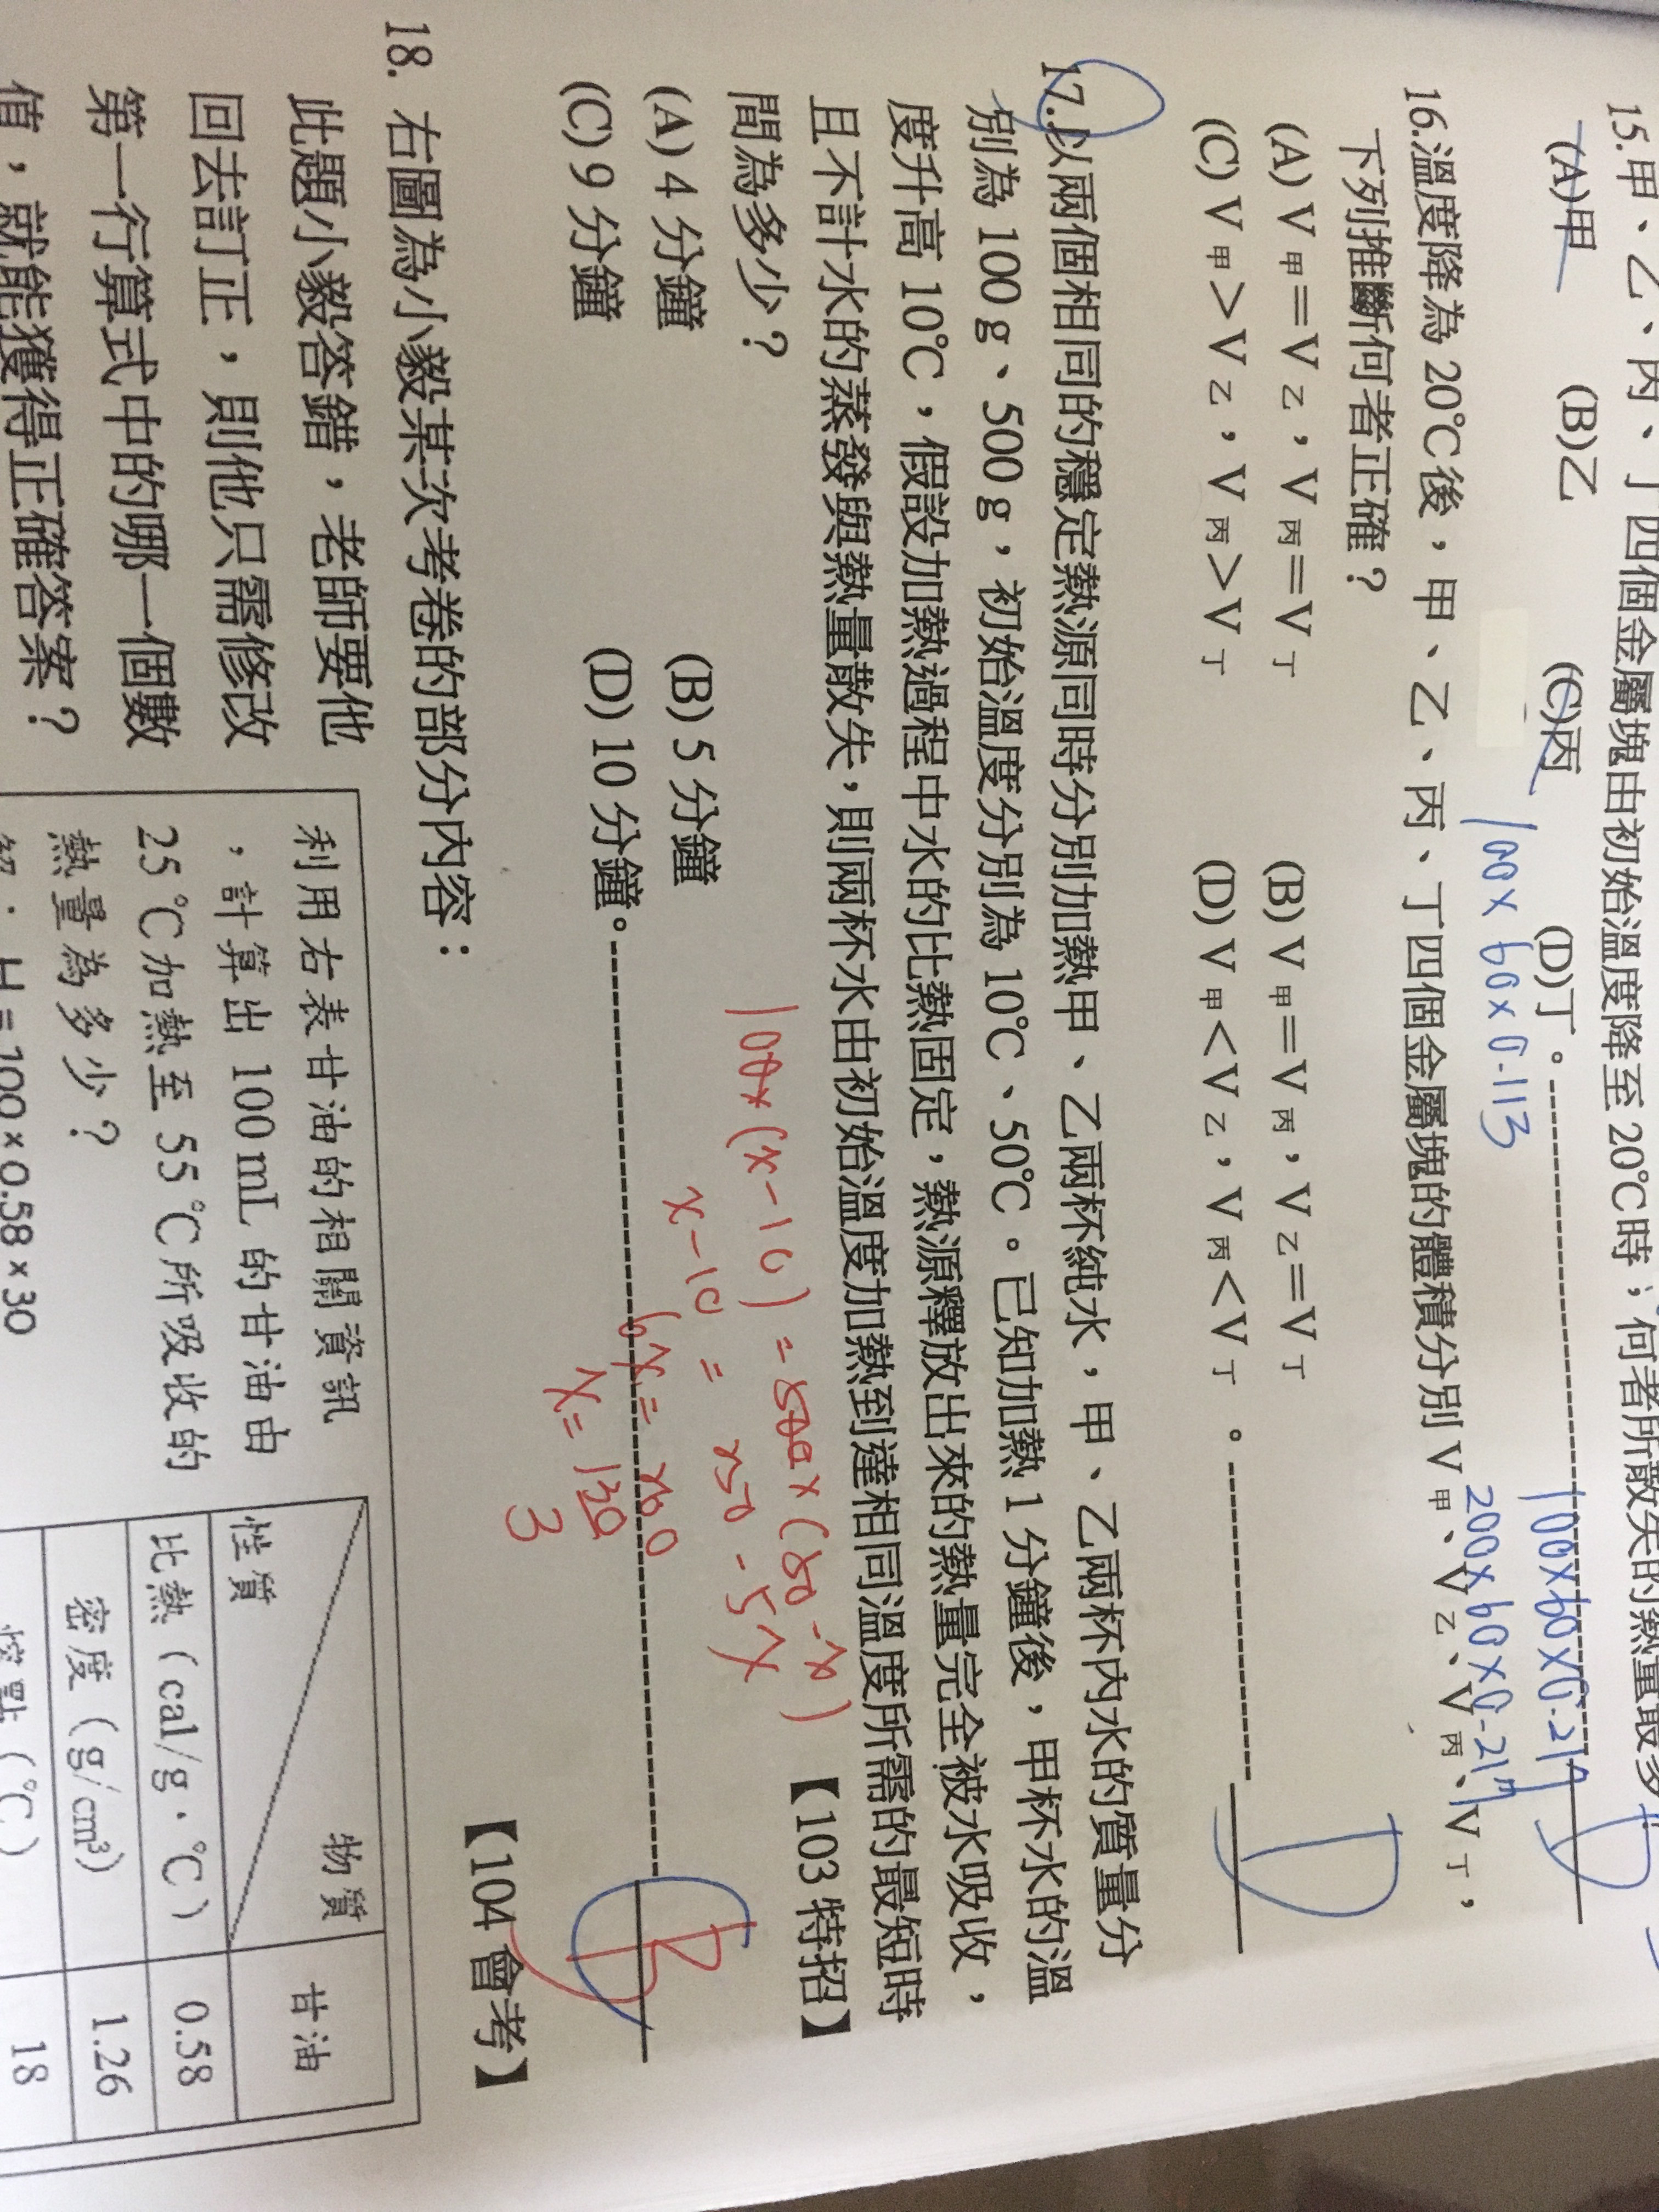 15.甲、乙、丙、丁四個金屬塊由初始溫度降至20℃時，何者所散失的熱量最多
(A)甲 (B)乙 (C)丙 (D)丁。 D
100×60×0.217
100×60×0.113
200×60×0.217
16.溫度降為20℃後，甲、乙、丙、丁四個金屬塊的體積分別V甲、V乙、V丙、V丁，
下列推斷何者正確？
(A) V甲＝V乙，V丙＝V丁 (B) V甲＝V丙，V乙＝V丁
(C) V甲＞V乙，V丙＞V丁 (D) V甲＜V乙，V丙＜V丁。 D
17.以兩個相同的穩定熱源同時分別加熱甲、乙兩杯純水，甲、乙兩杯內水的質量分
別為100 g、500 g，初始溫度分別為10℃、50℃。已知加熱1分鐘後，甲杯水的溫
度升高10℃，假設加熱過程中水的比熱固定，熱源釋放出來的熱量完全被水吸收，
且不計水的蒸發與熱量散失，則兩杯水由初始溫度加熱到達相同溫度所需的最短時
間為多少？ 【103特招】
100×(x-10) = 500×(50-x)
(A) 4分鐘 (B) 5分鐘
x-10 = 250-5x
(C) 9分鐘 (D) 10分鐘。 B
6x = 260
x = 130
3
18. 右圖為小毅某次考卷的部分內容： 【104會考】
此題小毅答錯，老師要他
回去訂正，則他只需修改
第一行算式中的哪一個數
值，就能獲得正確答案？
利用右表甘油的相關資訊
，計算出100 mL的甘油由
25℃加熱至55℃所吸收的
熱量為多少？
解：H＝100×0.58×30
性質 物質 甘油
比熱（cal/g・℃） 0.58
密度（g/cm³） 1.26
熔點（℃） 18